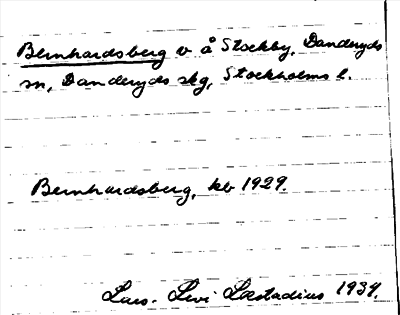 Bernhardsberg v å Stockby, Danderyds
sn, Danderyds skg, Stockholms l.
Bernhardsberg, kb 1929.
Lars-Levi Læstadius 1939.